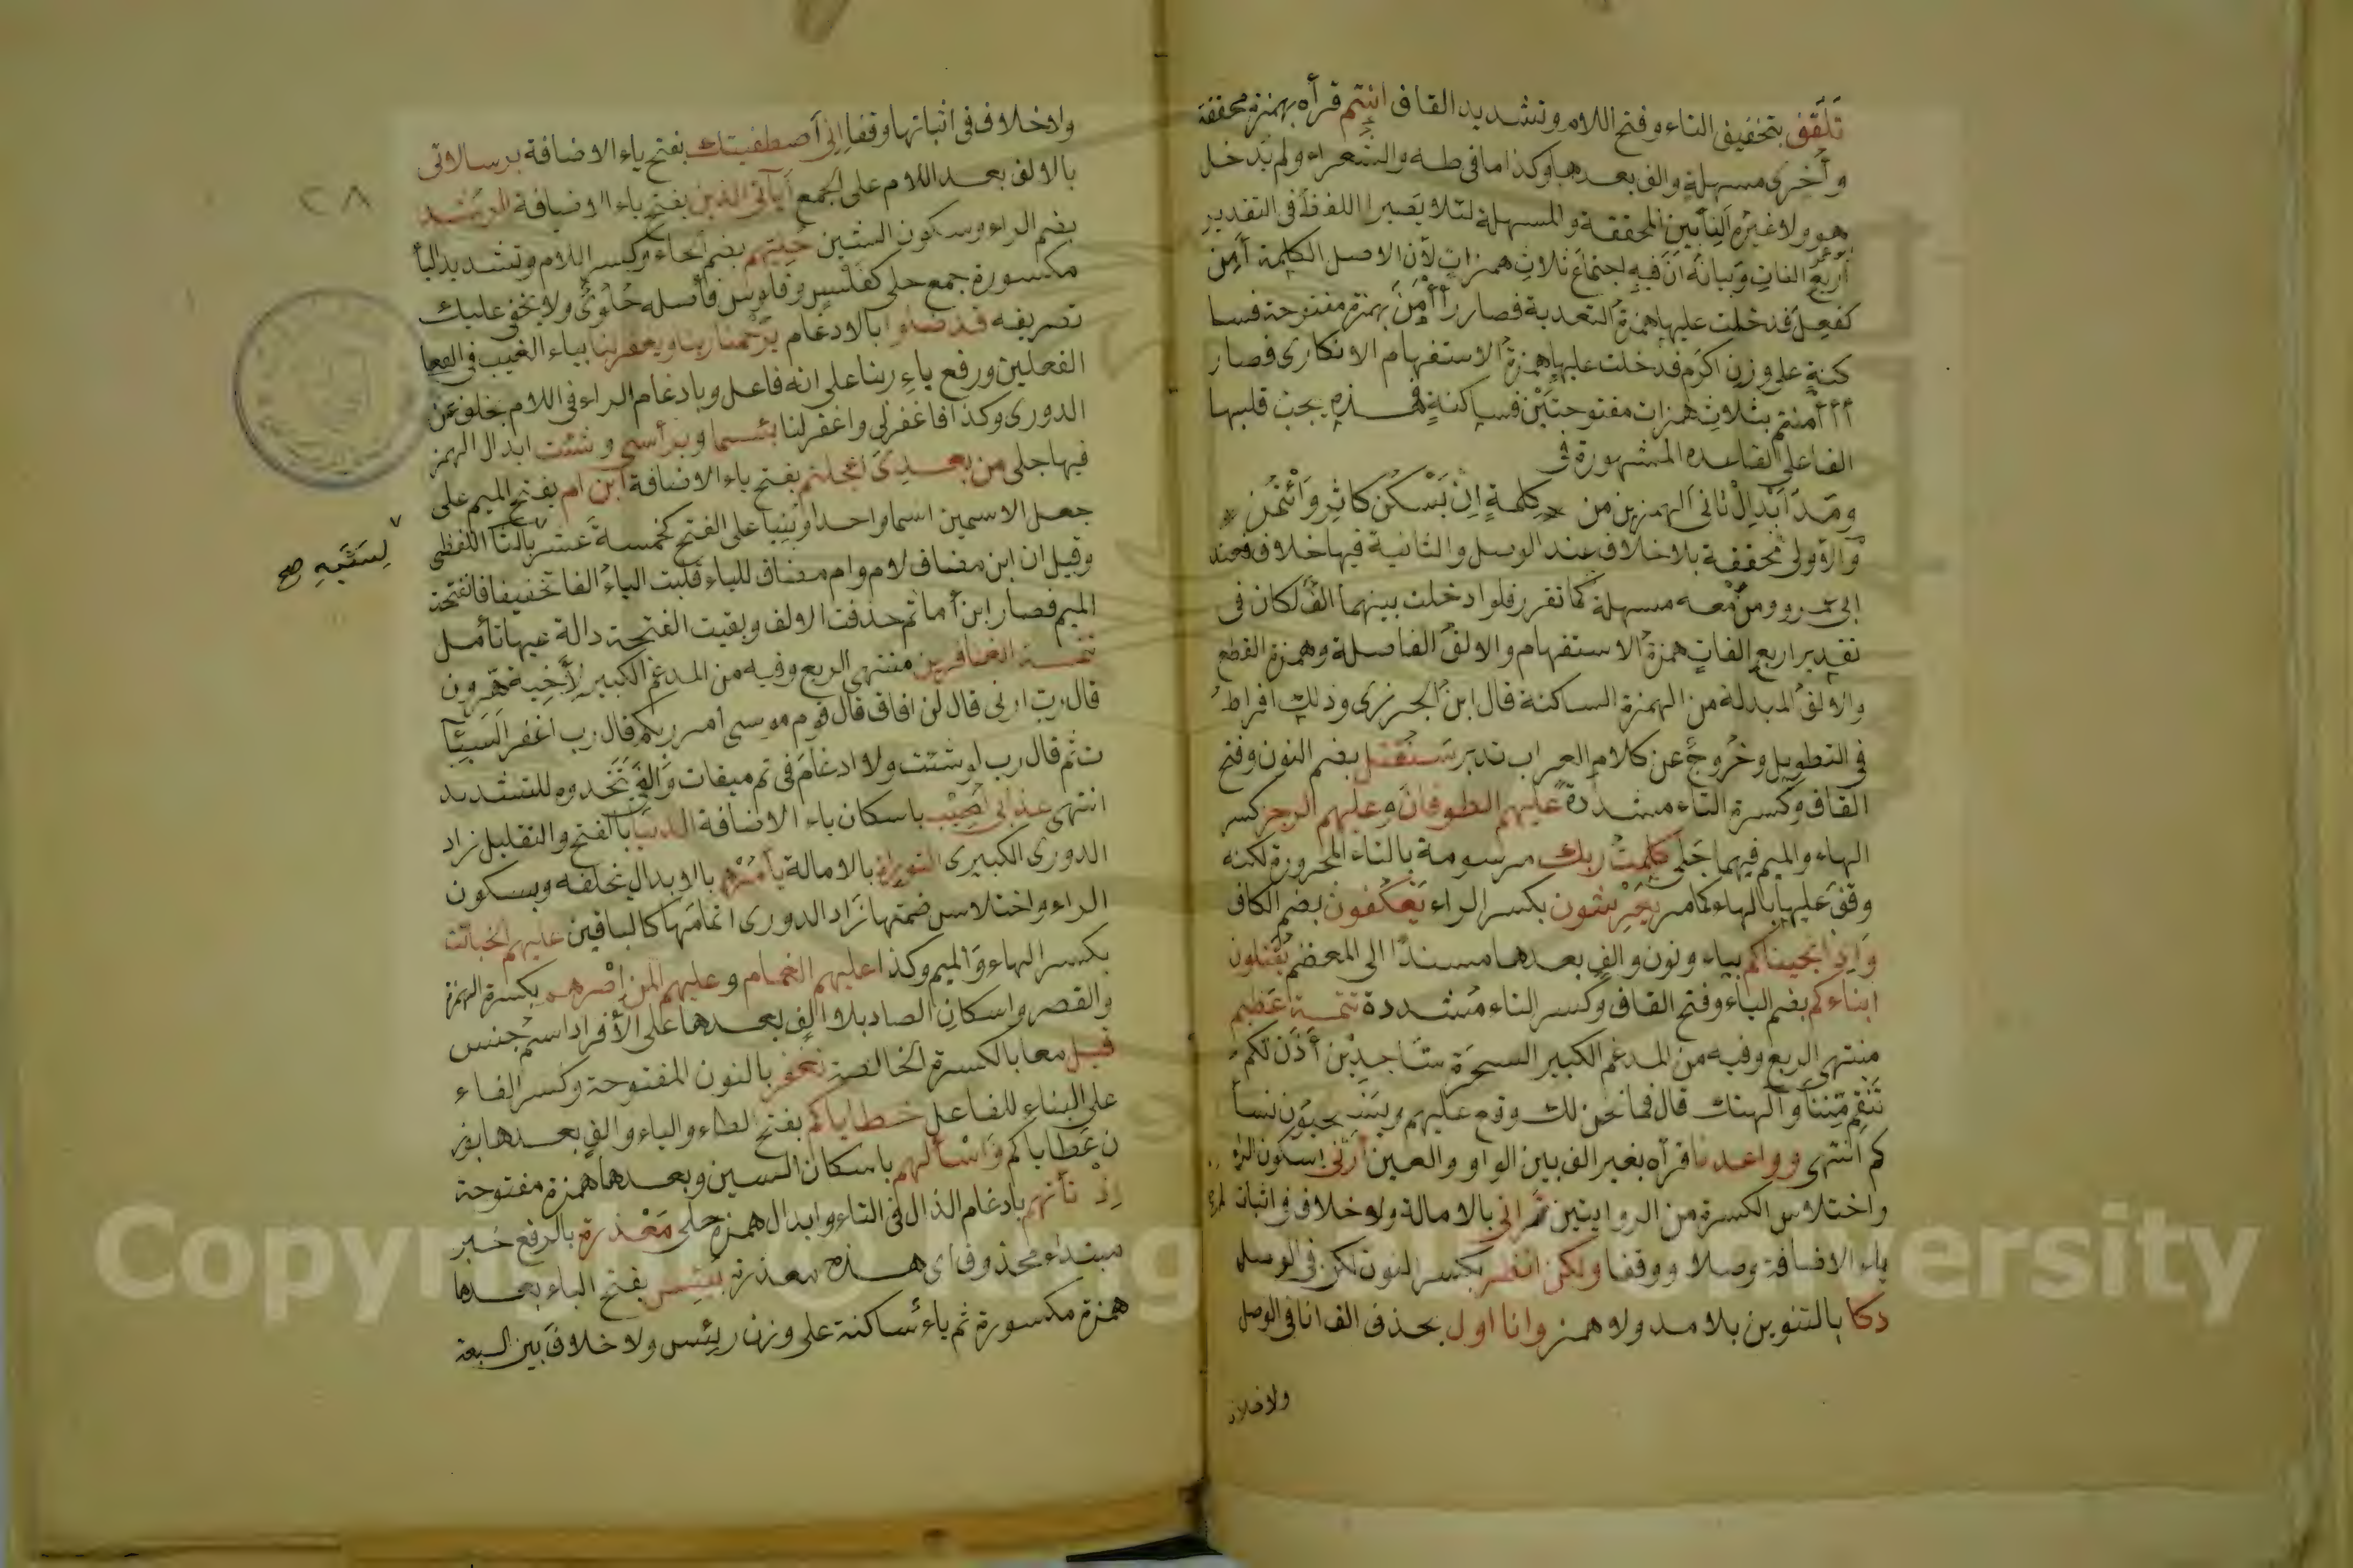 تَلَقَّف بتخفيف التاء وفتح اللام وتشديد القاف انتم قرأه بهمزة محققة
وأخرى مسهلة والف بعدها وكذا ما في طه والشعراء ولم يدخل
هو ولا غيره الفا بين المحققة والمسهلة لئلا يصير اللفظ في التقدير
أربع الفات وبيانه أن فيه اجتماع ثلاث همزات لأن الاصل الكلمة أمن
كفعل فدخلت عليها همزة التعدية فصار أأمن بهمزة مفتوحة فسا
كنة على وزن اكرم فدخلت عليها همزة الاستفهام الانكاري فصار
أأأمنتم بثلاث همزات مفتوحتين فساكنة فهذه يجب قلبها
الفا على القاعدة المشهورة في
ومدا ابدل ثاني الهمزين من * كلمة إن يسكن كآثر وائتمن *
والاولى محققة بلا خلاف عند الوصل والثانية فيها خلاف فعند
ابي عمرو ومن معه مسهلة كما تقرر فلو ادخلت بينهما الف لكان في
تقدير اربع الفات همزة الاستفهام والالف الفاصلة وهمزة القطع
والالف المبدلة من الهمزة الساكنة قال ابن الجزري وذلك افراط
في التطويل وخروج عن كلام العرب تدبر سنقتل بضم النون وفتح
القاف وكسرة التاء مشددة عليهم الطوفان وعليهم الرجز كسر
الهاء والميم فيهما جلى كلمت ربك مرسومة بالتاء المجرورة لكنه
وقف عليها بالهاء كما مر يعرشون بكسر الراء يعكفون بضم الكاف
وإذ انجيناكم بياء ونون والف بعدها مسندا الى المعظم يقتلون
ابناءكم بضم الياء وفتح القاف وكسر التاء مشددة تتمة عظيم
منتهى الربع وفيه من المدغم الكبير السحرة ساجدين أذن لكم
تنقم منا وآلهتك قال فما نحن لك وقع عليهم ويستحيون نسا
كم انتهى وواعدنا قرأه بغير الف بين الواو والعين أرني اسكون الراء
واختلاس الكسرة من الروايتين تراني بالامالة ولا خلاف في اثبات
ياء الاضافة وصلا ووقفا ولكن انظر بكسر النون لكن في الوصل
دكا بالتنوين بلا مد ولا همز وانا اول بحذف الف انا في الوصل
ولا خلاف
ولا خلاف في اثباتها وقفا إني أصطفيتك بفتح ياء الاضافة برسالاتي
بالالف بعد اللام على الجمع آياتي الذين بفتح ياء الاضافة الرشد
بضم الراء وسكون الشين حليهم بضم الحاء وكسر اللام وتشديد اليا
مكسورة جمع حلي كفلس وفلوس فأصله حلوي ولا يخفى عليك
تصريفه قد ضلوا بالادغام يرحمنا ربنا ويغفر لنا بياء الغيب في الفعا
الفعلين ورفع باء ربنا على انه فاعل وبادغام الراء في اللام بخلف عن
الدوري وكذا فاغفر لي واغفر لنا بئسما وبرأسي وشئت ابدال الهمز
فيها جلي من بعدي أعجلتم بفتح ياء الاضافة ابن ام بفتح الميم على
جعل الاسمين اسما واحدا وبنيا على الفتح كخمسة عشر بالتا اللفظي
وقيل ان ابن مضاف لام وام مضاف للياء قلبت الياء الفا تخفيفا فانفتحت
الميم فصار ابن أما ثم حذفت الالف وبقيت الفتحة دالة عيها تأمل
تتمة الغافرين منتهى الربع وفيه من المدغم الكبير لأخيه هرون
قال رب ارني قال لن افاق قال قوم موسى أمر ربكم قال رب اغفر السيئا
ت ثم قال رب لو شئت ولا ادغام في تم ميقات والف تتخدوه للتشديد
انتهى عذابي أصيب باسكان ياء الاضافة الدنيا بالفتح والتقليل زاد
الدوري الكبيرى التوراة بالامالة يأمرهم بالابدال بخلفه وبسكون
الراء واختلاس ضمتها زاد الدوري اتمامها كالباقين عليهم الخبائث
بكسر الهاء والميم وكذا عليهم الغمام وعليهم المن إصرهم بكسرة الهمزة
والقصر واسكان الصاد بلا الف بعدها على الأفراد اسم جنس
قيل معا بالكسرة الخالصة نغفر بالنون المفتوحة وكسر الفاء
على البناء للفاعل خطاياكم بفتح الطاء والياء والف بعدها بوز
ن عطاياكم واسألهم باسكان السين وبعدها همزة مفتوحة
إذ تأتيهم بادغام الذال في التاء وابدال همزه جلي معذرة بالرفع خبر
مبتداء محذوف اى هذه معذرة بئيس بفتح الباء بعدها
همزة مكسورة ثم ياء ساكنة على وزن رئيس ولا خلاف بين السبعة
لِسَبَبِهِ صح
٢٨
Copyright © King Saud University